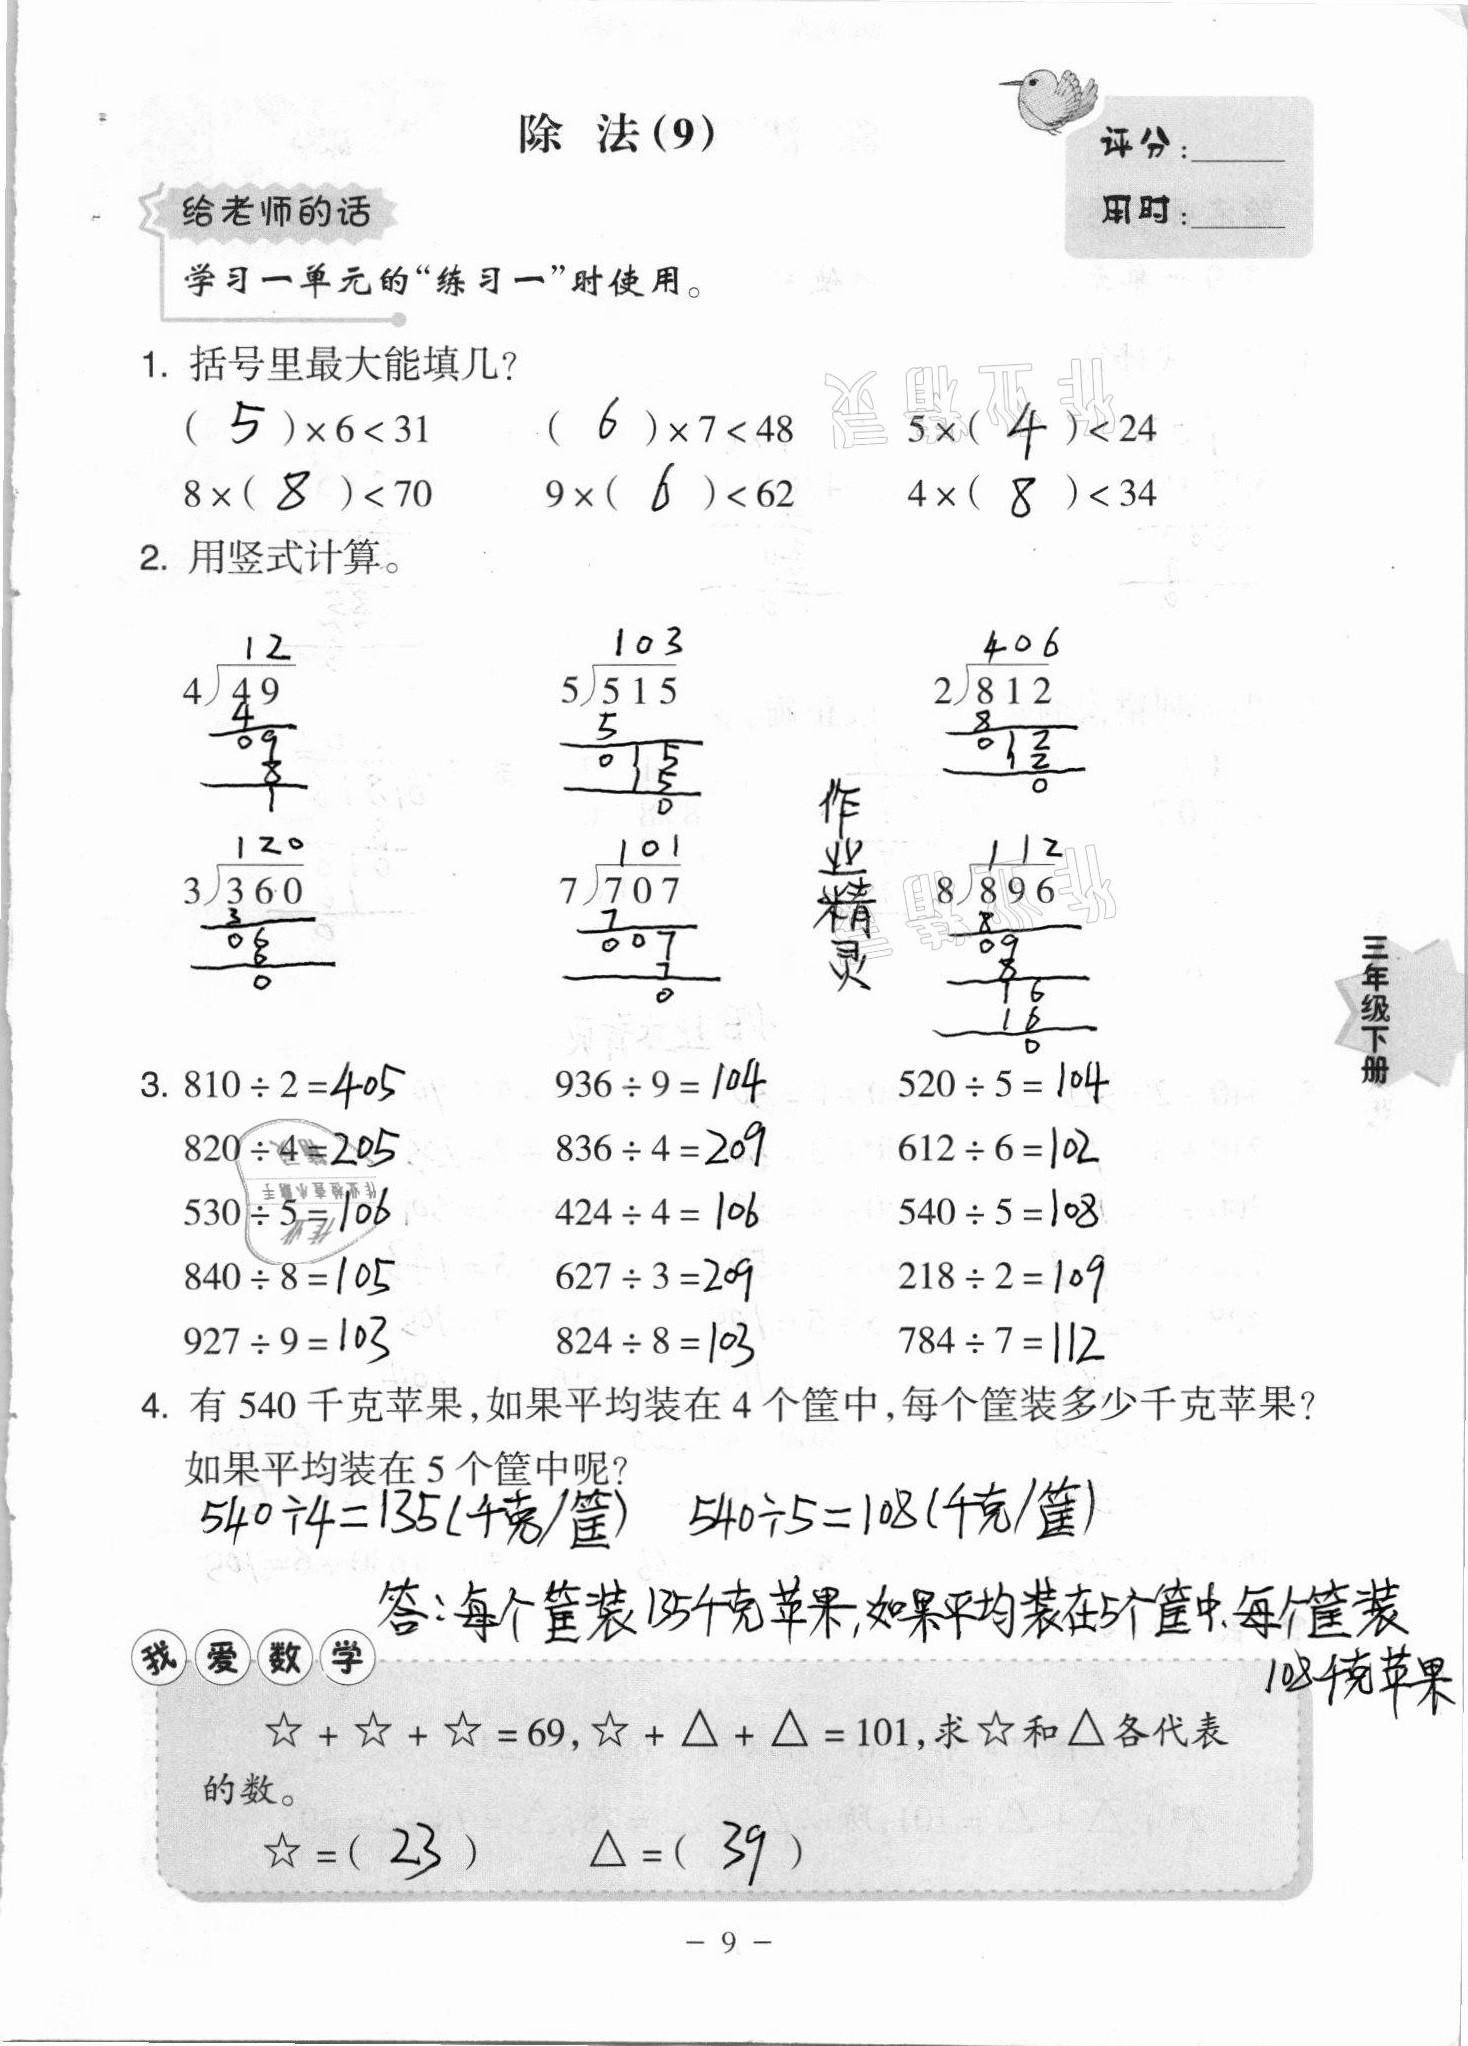 除 法(9)
评分:
用时:
给老师的话
学习一单元的“练习一”时使用。
1. 括号里最大能填几?
( 5 )×6<31 ( 6 )×7<48 5×( 4 )<24
8×( 8 )<70 9×( 6 )<62 4×( 8 )<34
2. 用竖式计算。
12 103 406
4)49 5)515 2)812
4 5 8
09 015 012
8 15 12
1 0 0
120 101 112
3)360 7)707 8)896
3 7 8
06 007 09
6 7 8
0 0 16
16
0
作业精灵
三年级下册
3. 810÷2=405 936÷9=104 520÷5=104
820÷4=205 836÷4=209 612÷6=102
530÷5=106 424÷4=106 540÷5=108
840÷8=105 627÷3=209 218÷2=109
927÷9=103 824÷8=103 784÷7=112
4. 有 540 千克苹果,如果平均装在 4 个筐中,每个筐装多少千克苹果?
如果平均装在 5 个筐中呢?
540÷4=135(千克/筐) 540÷5=108(千克/筐)
答:每个筐装135千克苹果,如果平均装在5个筐中、每个筐装
108千克苹果
我爱数学
☆+☆+☆=69,☆+△+△=101,求☆和△各代表
的数。
☆=( 23 ) △=( 39 )
- 9 -